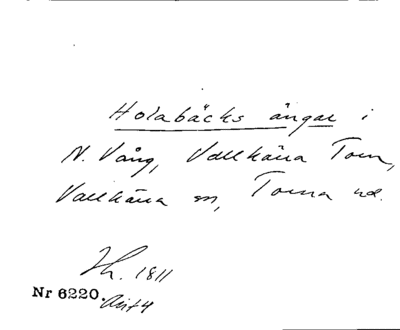 Holabäcks ängar i
N. Vång, Vallkärra Torn,
Vallkärra sn, Torna hd.
Th. 1811
Nr 6220.